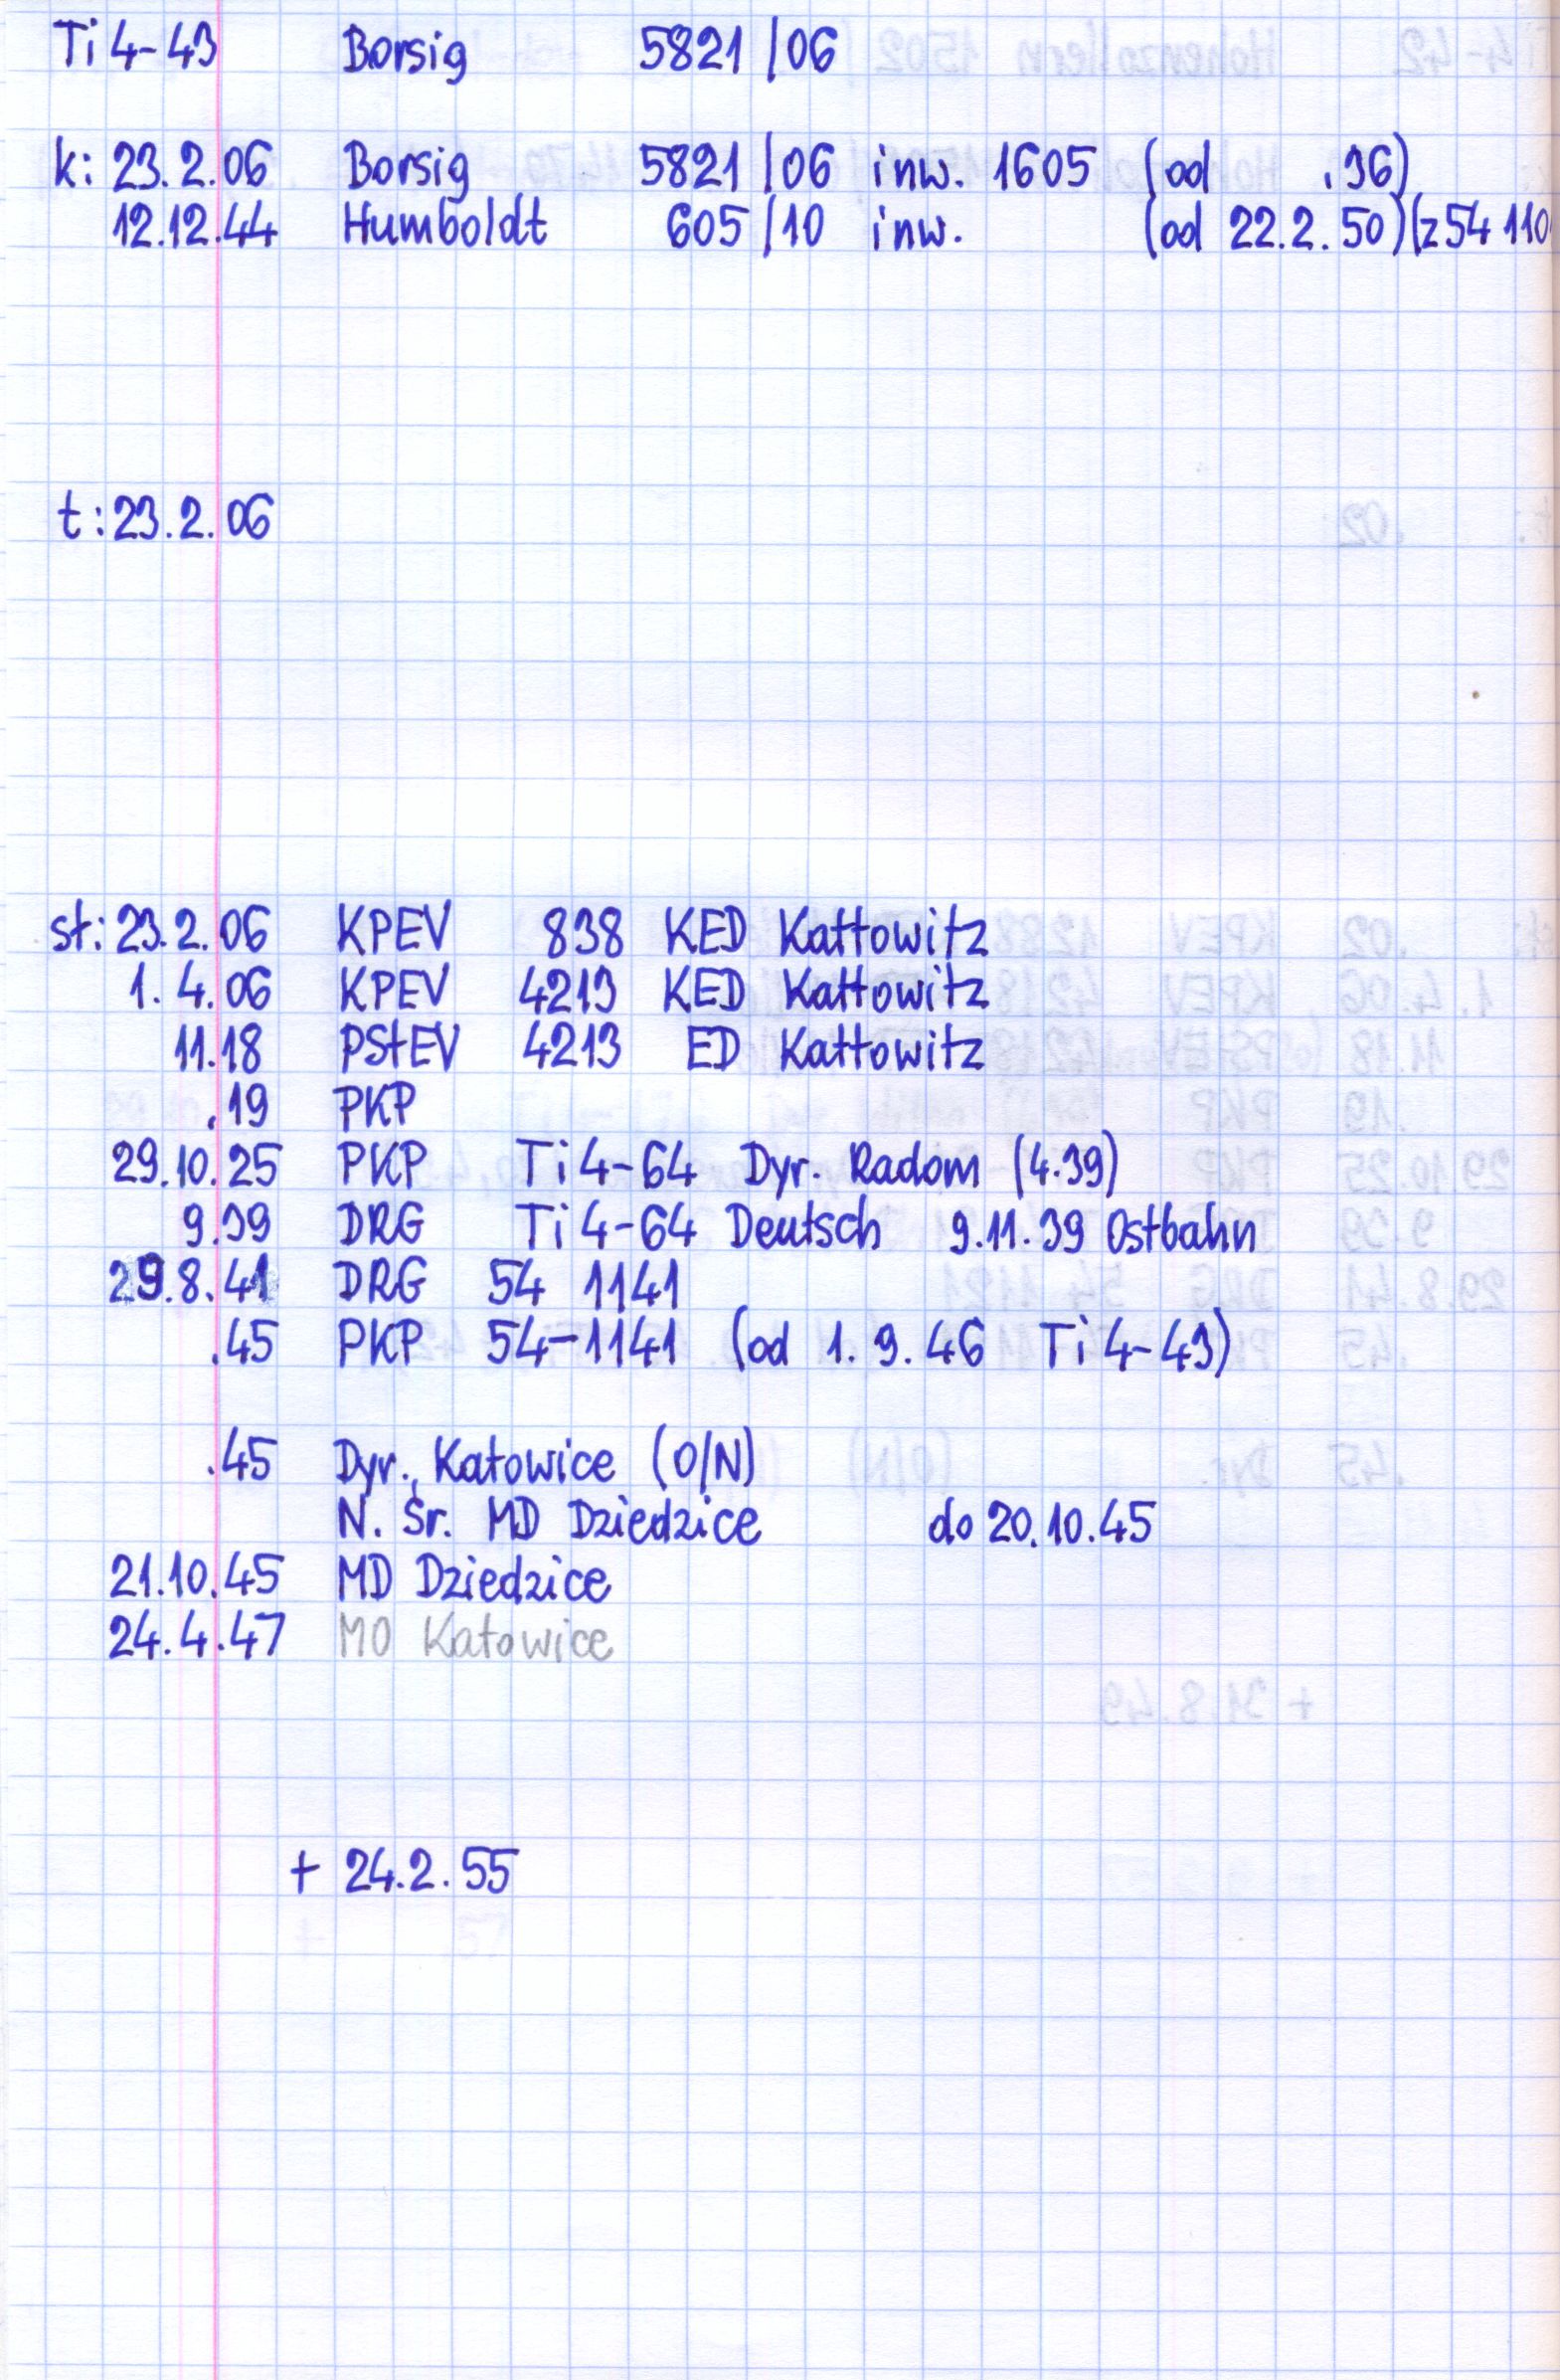 Ti4-43 Borsig 5821/06
k: 23.2.06 Borsig 5821/06 inw. 1605 (od .36)
12.12.44 Humboldt 605/10 inw. (od 22.2.50)(z 54 110
t: 23.2.06
st: 23.2.06 KPEV 838 KED Kattowitz
1.4.06 KPEV 4213 KED Kattowitz
11.18 PStEV 4213 ED Kattowitz
.19 PKP
29.10.25 PKP Ti4-64 Dyr. Radom (4.39)
9.39 DRG Ti4-64 Deutsch 9.11.39 Ostbahn
29.8.41 DRG 54 1141
.45 PKP 54-1141 (od 1.9.46 Ti4-43)
.45 Dyr. Katowice (O/N)
N. Śr. MD Dziedzice do 20.10.45
21.10.45 MD Dziedzice
24.4.47 MD Katowice
+ 24.2.55